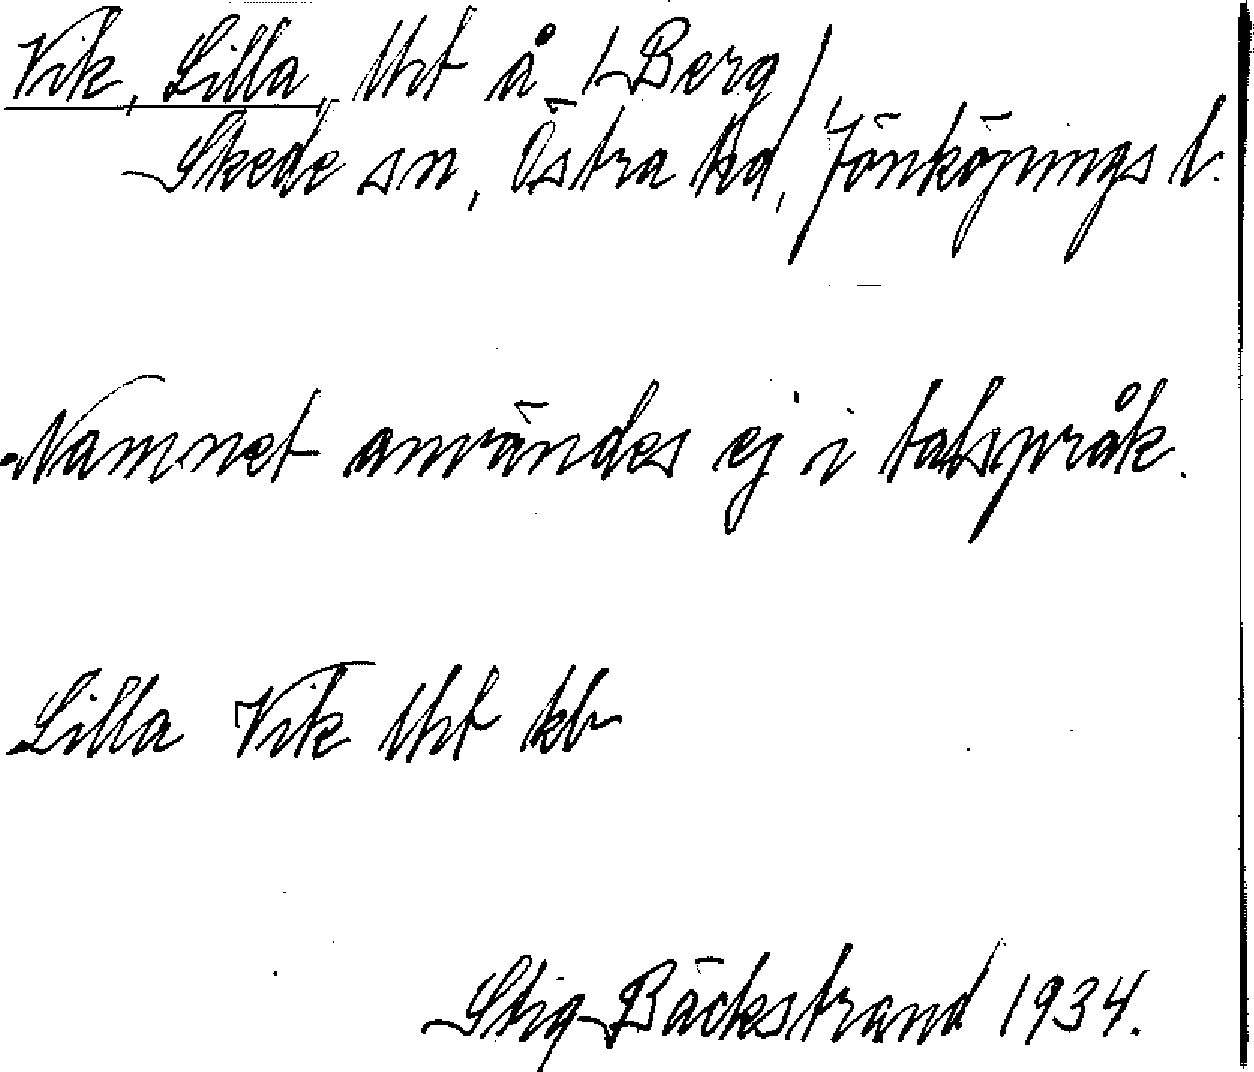 Vik, Lilla, lht å Berg
Skede sn, Östra hd, Jönköpings l.
Namnet användes ej i talspråk.
Lilla Vik lht kb
Stig Bäckstrand 1934.